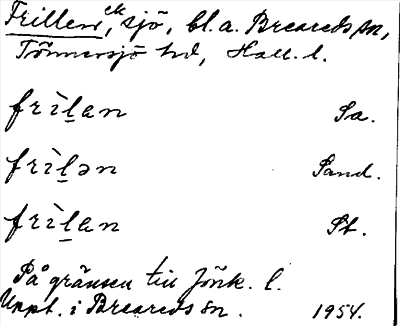 Frillen, ck sjö, bl. a. Breareds sn,
Tönnersjö hd, Hall. l.
frìl̲an Sa.
frìl̲ən Sand.
frìl̲an St.
På gränsen till Jönk. l.
Uppt. i Breareds sn. 1954.